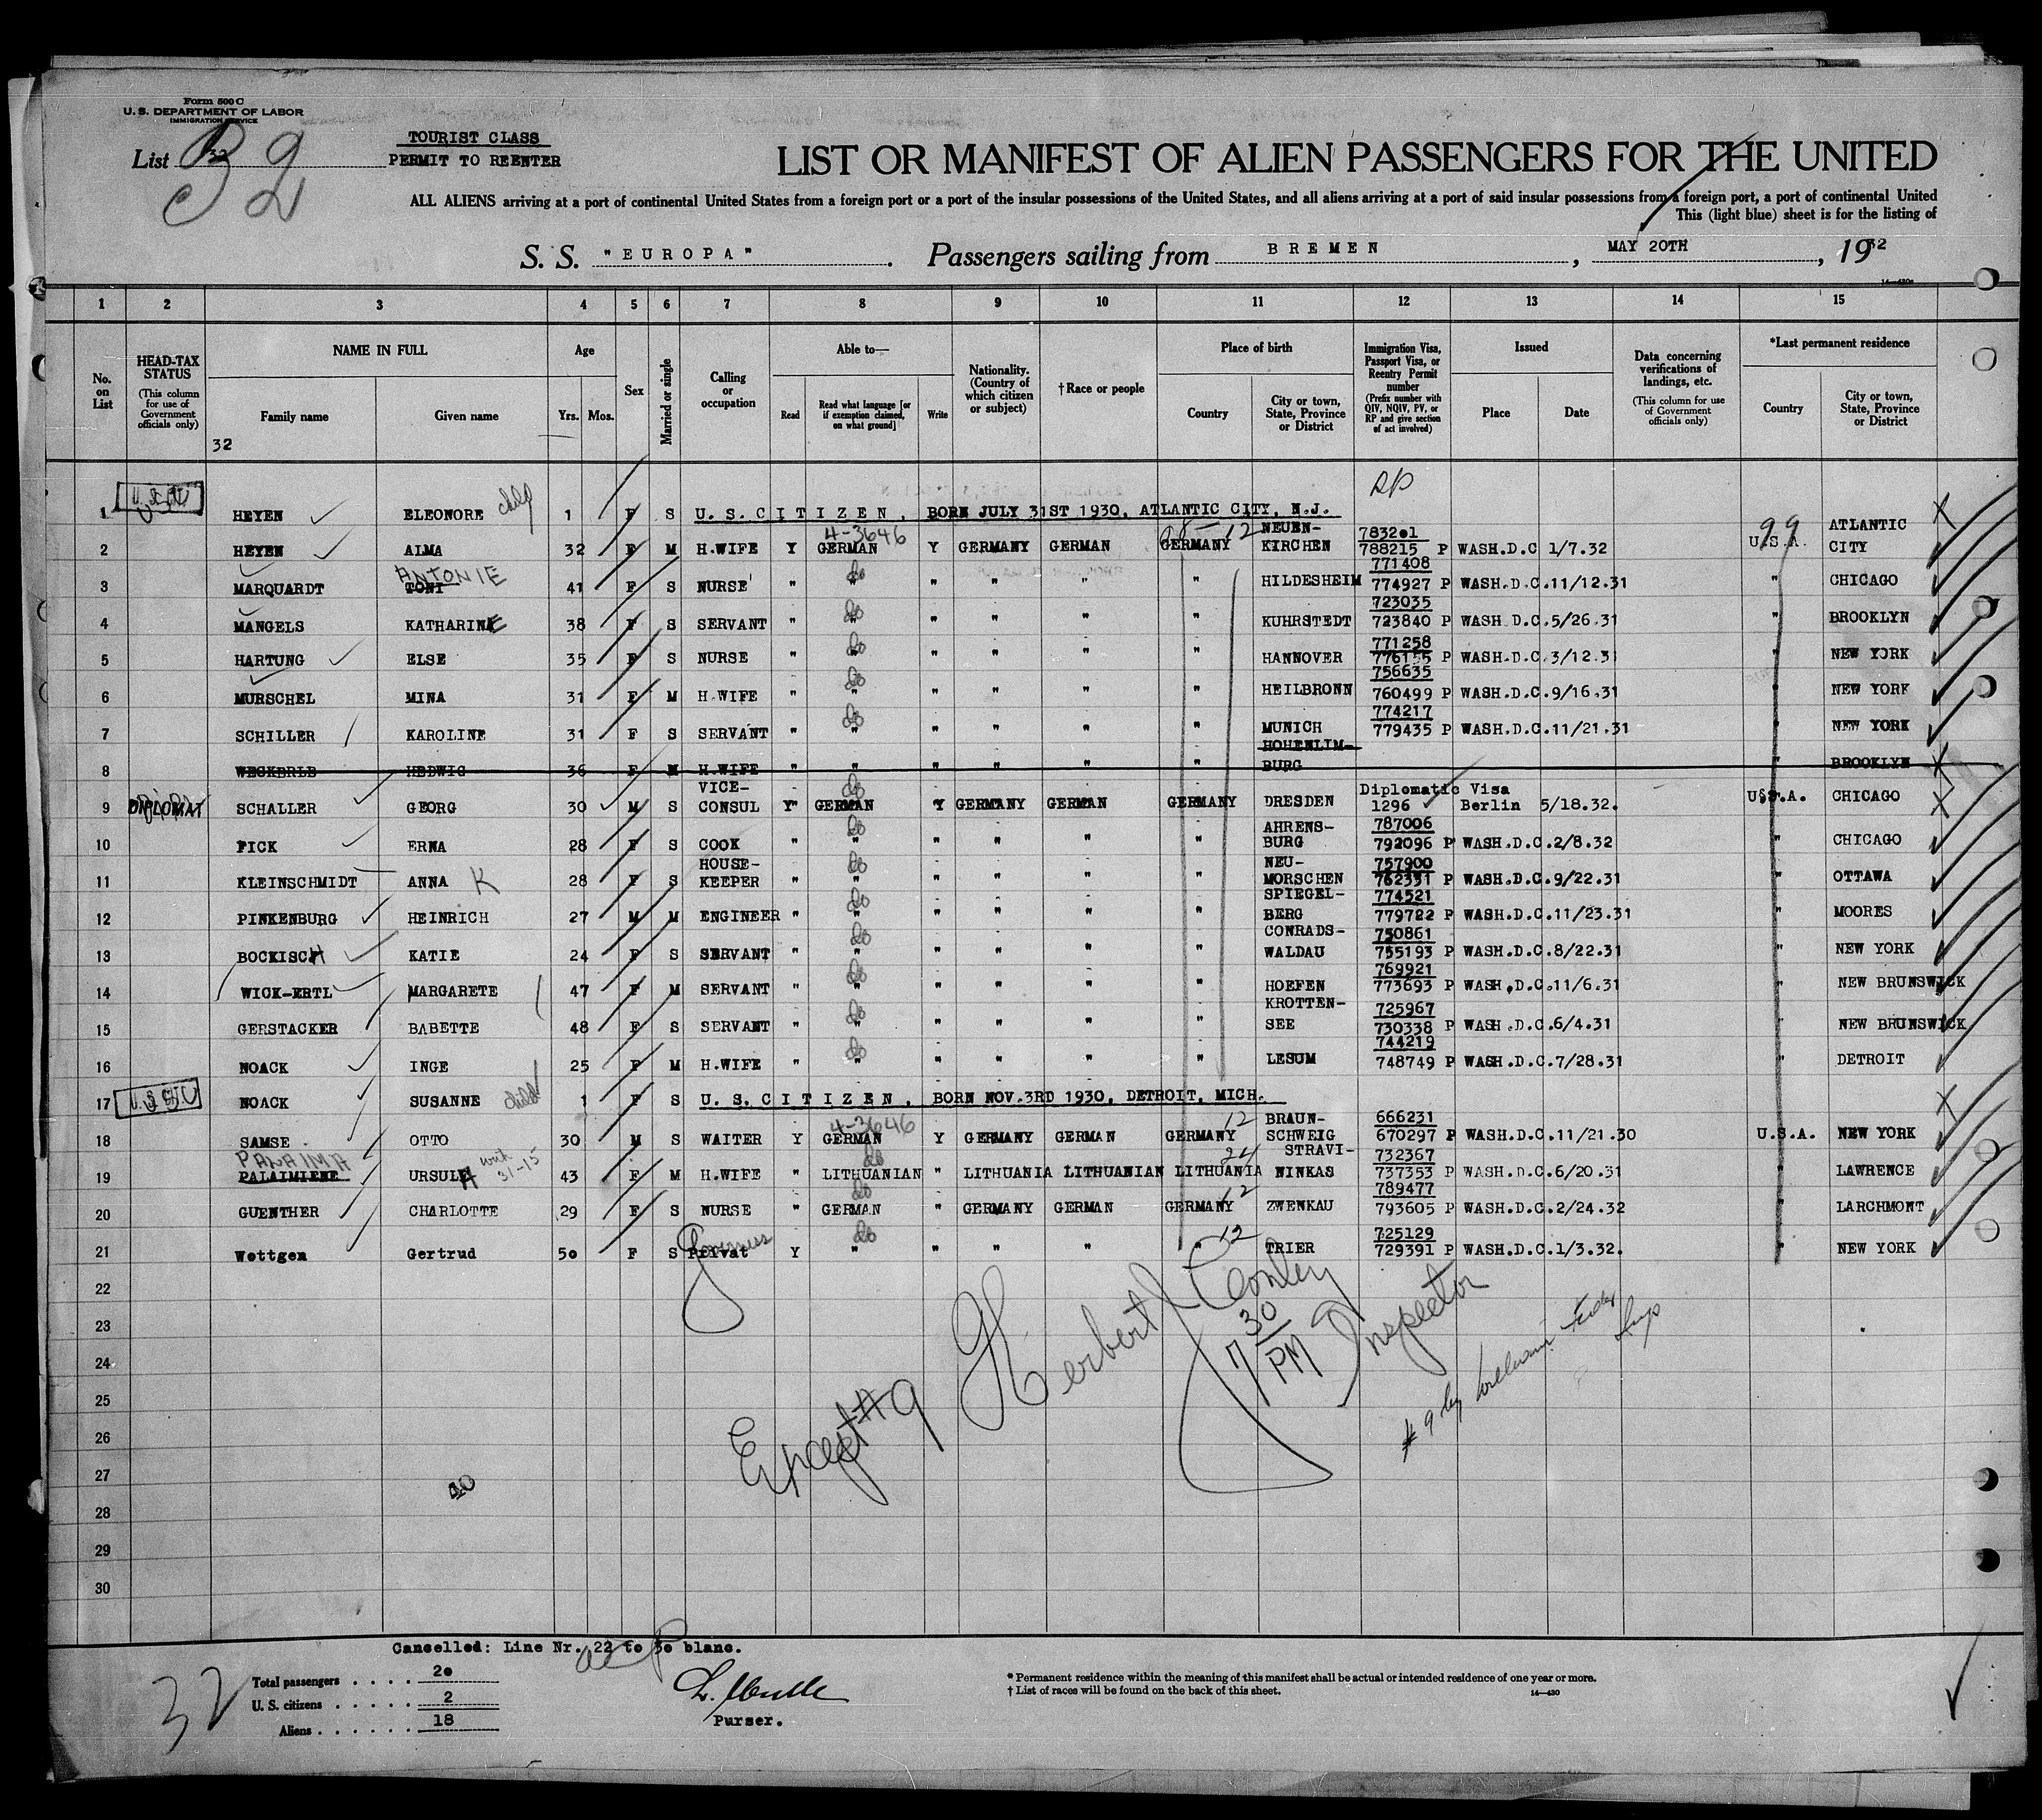 Form 500 C
U. S. DEPARTMENT OF LABOR
IMMIGRATION SERVICE
List 32
32
TOURIST CLASS
PERMIT TO REENTER
LIST OR MANIFEST OF ALIEN PASSENGERS FOR THE UNITED
ALL ALIENS arriving at a port of continental United States from a foreign port or a port of the insular possessions of the United States, and all aliens arriving at a port of said insular possessions from a foreign port, a port of continental United
This (light blue) sheet is for the listing of
S. S. "EUROPA". Passengers sailing from BREMEN, MAY 20TH, 1932
1 2 3 4 5 6 7 8 9 10 11 12 13 14 15
No. on List
HEAD-TAX STATUS (This column for use of Government officials only)
NAME IN FULL
Family name
Given name
32
Age
Yrs. Mos.
Sex
Married or single
Calling or occupation
Able to—
Read
Read what language [or if exemption claimed, on what ground]
Write
Nationality. (Country of which citizen or subject)
†Race or people
Place of birth
Country
City or town, State, Province or District
Immigration Visa, Passport Visa, or Reentry Permit number (Prefix number with QIV, NQIV, PV, or RP and give section of act involved)
Issued
Place
Date
Data concerning verifications of landings, etc. (This column for use of Government officials only)
*Last permanent residence
Country
City or town, State, Province or District
RP
1 HEYEN ELEONORE child 1 F S U. S. CITIZEN, BORN JULY 31ST 1930, ATLANTIC CITY, N.J.
4-3646 12
2 HEYEN ALMA 32 F M H.WIFE Y GERMAN Y GERMANY GERMAN GERMANY NEUEN-KIRCHEN 788215 P WASH.D.C 1/7.32 99 U.S.A. ATLANTIC CITY
3 MARQUARDT TONI ANTONIE 41 F S NURSE " do " " " " " HILDESHEIM 771408 774927 P WASH.D.C.11/12.31 " CHICAGO
4 MANGELS KATHARINE 38 F S SERVANT " do " " " " " KUHRSTEDT 723035 723840 P WASH.D.C.5/26.31 " BROOKLYN
5 HARTUNG ELSE 35 F S NURSE " do " " " " " HANNOVER 771258 776155 P WASH.D.C.3/12.31 " NEW YORK
6 MURSCHEL MINA 31 F M H.WIFE " do " " " " " HEILBRONN 756635 760499 P WASH.D.C.9/16.31 " NEW YORK
7 SCHILLER KAROLINE 31 F S SERVANT " do " " " " " MUNICH 774217 779435 P WASH.D.C.11/21.31 " NEW YORK
8 WECKERLE HEDWIG 36 F M H.WIFE " " " " " " HOHENLIM-BURG " BROOKLYN
9 DIPLOMAT SCHALLER GEORG 30 M S VICE-CONSUL Y do GERMAN Y GERMANY GERMAN GERMANY DRESDEN Diplomatic Visa 1296 Berlin 5/18.32. U.S.A. CHICAGO
10 FICK ERNA 28 F S COOK " do " " " " " AHRENS-BURG 787006 792096 P WASH.D.C.2/8.32 " CHICAGO
11 KLEINSCHMIDT ANNA K 28 F S HOUSE-KEEPER " do " " " " " NEU-MORSCHEN 757900 762331 P WASH.D.C.9/22.31 " OTTAWA
12 PINKENBURG HEINRICH 27 M M ENGINEER " do " " " " " SPIEGEL-BERG 774521 779722 P WASH.D.C.11/23.31 " MOORES
13 BOCKISCH KATIE 24 F S SERVANT " do " " " " " CONRADS-WALDAU 750861 755193 P WASH.D.C.8/22.31 " NEW YORK
14 WICK-ERTL MARGARETE 47 F M SERVANT " do " " " " " HOEFEN 769921 773693 P WASH.D.C.11/6.31 " NEW BRUNSWICK
15 GERSTACKER BABETTE 48 F S SERVANT " do " " " " " KROTTEN-SEE 725967 730338 P WASH.D.C.6/4.31 " NEW BRUNSWICK
16 NOACK INGE 25 F M H.WIFE " do " " " " " LESUM 744219 748749 P WASH.D.C.7/28.31 " DETROIT
17 NOACK SUSANNE child 1 F S U. S. CITIZEN, BORN NOV.3RD 1930, DETROIT, MICH.
4-3646 12
18 SAMSE OTTO 30 M S WAITER Y GERMAN Y GERMANY GERMAN GERMANY BRAUN-SCHWEIG 666231 670297 P WASH.D.C.11/21.30 U.S.A. NEW YORK
PANAIMA with 31-15 24
19 PALAIMIENE URSULA 43 F M H.WIFE " do LITHUANIAN " LITHUANIA LITHUANIAN LITHUANIA STRAVI-NINKAS 732367 737353 P WASH.D.C.6/20.31 " LAWRENCE
20 GUENTHER CHARLOTTE 29 F S NURSE " do GERMAN " GERMANY GERMAN GERMANY 12 ZWENKAU 789477 793605 P WASH.D.C.2/24.32 " LARCHMONT
21 Wettgen Gertrud 50 F S Privat Governess Y do " " " " " 12 TRIER 725129 729391 P WASH.D.C.1/3.32. " NEW YORK
22
23
24
25
26
27
28
29
30
Except #9 Herbert J Conley Inspector
7 30 PM
# 9 by
Cancelled: Line Nr. 22 to 30 blanc.
32
Total passengers . . . . 20
U. S. citizens . . . . . 2
Aliens . . . . . . 18
Purser.
* Permanent residence within the meaning of this manifest shall be actual or intended residence of one year or more.
† List of races will be found on the back of this sheet.
14—430